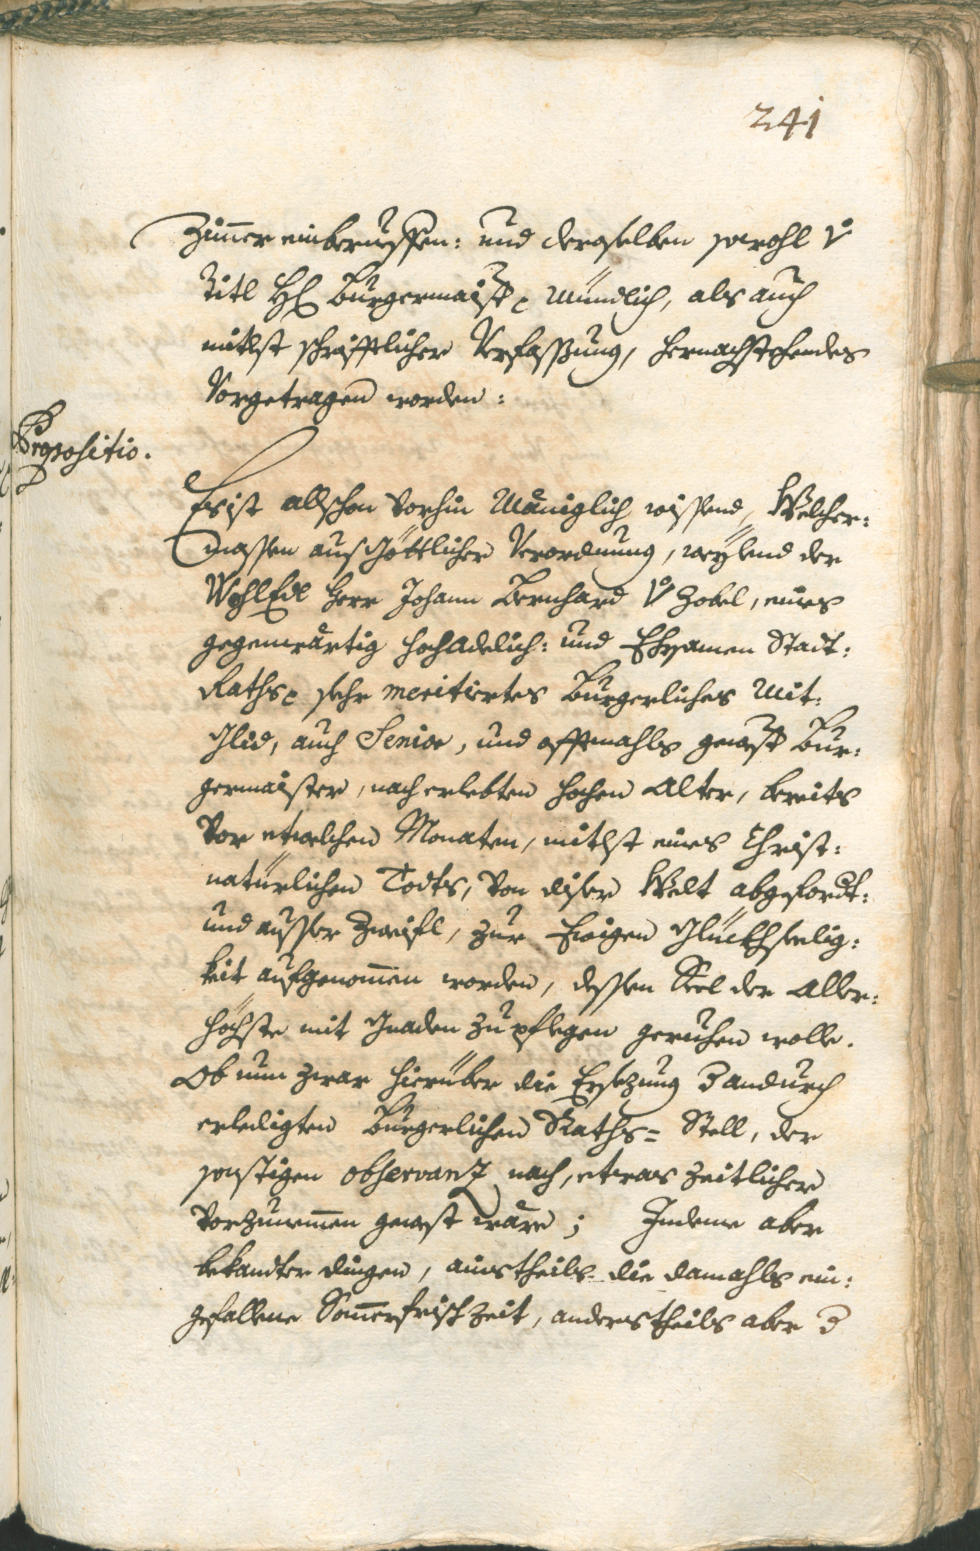 241
Zimer einberueffen: und derselben sowohl v̊
Titl H: Burgermaister Mündlich, als auch
mitlst schrifftlicher Verfassung, hernachstehendes
Vorgetragen worden:
Propositio.
Es ist allschon vorhin Mäniglich wissend, Welcher:
massen aus Göttlicher Verordnung, weylend der
WohlEdl Herr Johann Bernhard v̊ Zobel, eines
gegenwärtig Hochadelich: und Ehrsamen Stadt:
Raths sehr meritirtes Burgerliches Mit:
Glid, auch Senior, und offtmahls gewest Bur:
germaister, nach erlebten hohen Alter, bereits
vor etwelchen Monaten, mitlst eines Christ:
natürlichen Todts, von diser Welt abgefordt:
und ausser Zweifl, zur Ewigen Glückhseelig:
keit aufgenom̄en worden, dessen Seel der Aller:
höchste mit Gnaden zu pflegen geruhen wolle.
Ob nun zwar hierüber die Ersezung d andurch
erledigten Burgerlichen Raths= Stell, der
sonstigen observanz nach, etwas zeitlicher
vorzunem̄en gewest wäre; Indeme aber
bekandter dingen, ainstheils die damahls ein:
gefallene Som̄erfrisch Zeit, anderstheils aber d